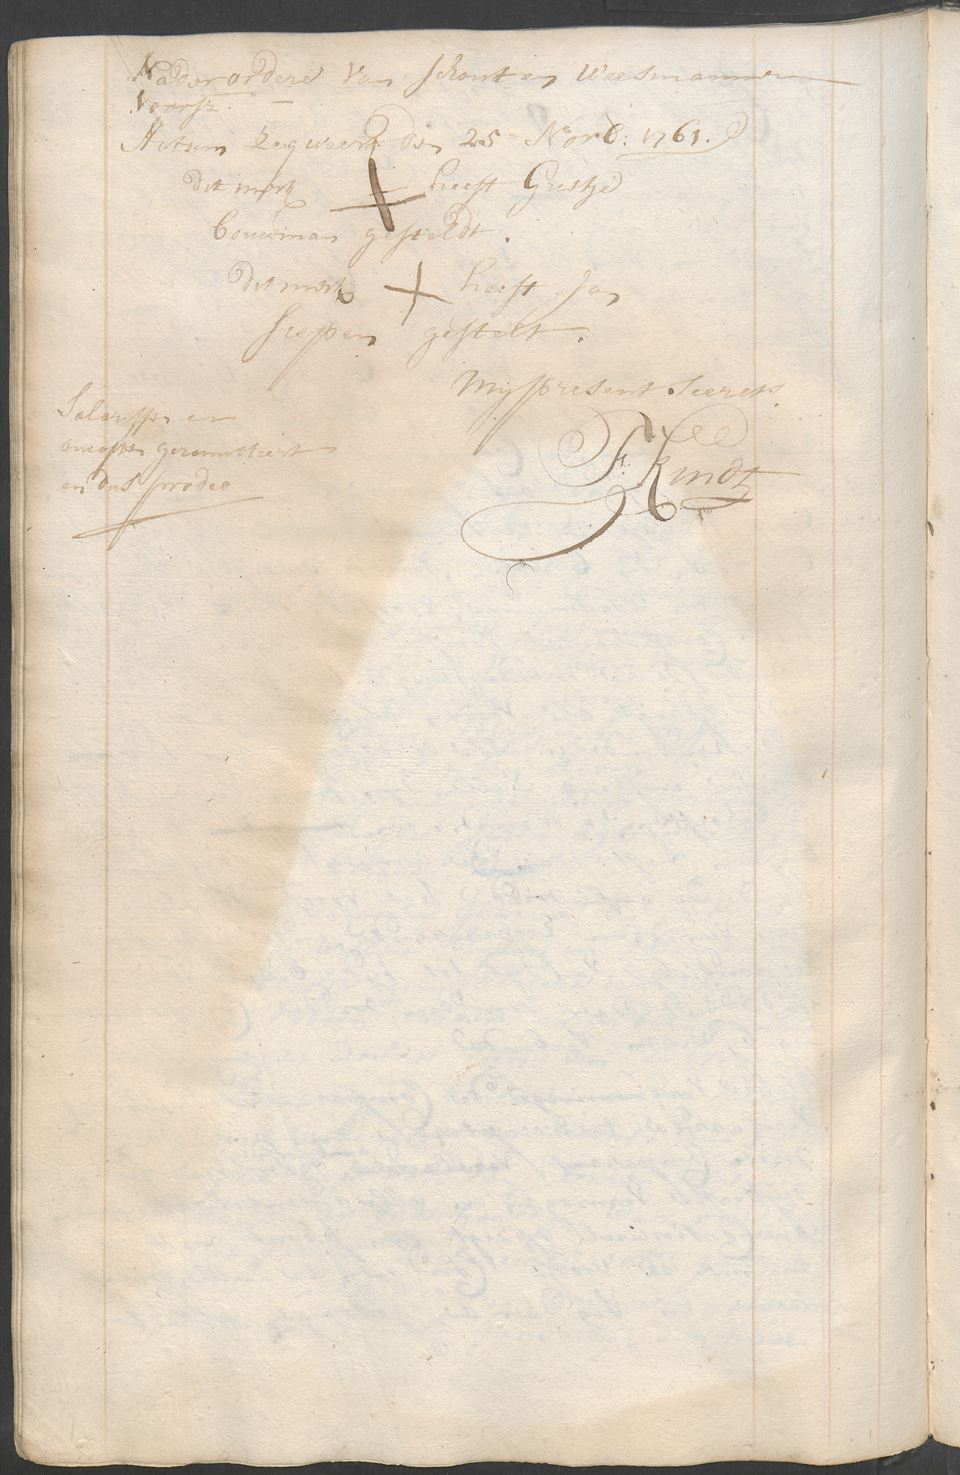 Nader ordere van schout en weesmannen
voorsz. —
Actum Zegwaert den 25 Novb: 1761.
dit merk + heeft Grietje
Bouwman gesteldt.
dit merk + heeft Jan
gestelt.
Mij present Secrets.
F: Kindt
Salarissen en
geremitteert
en dus prodeo